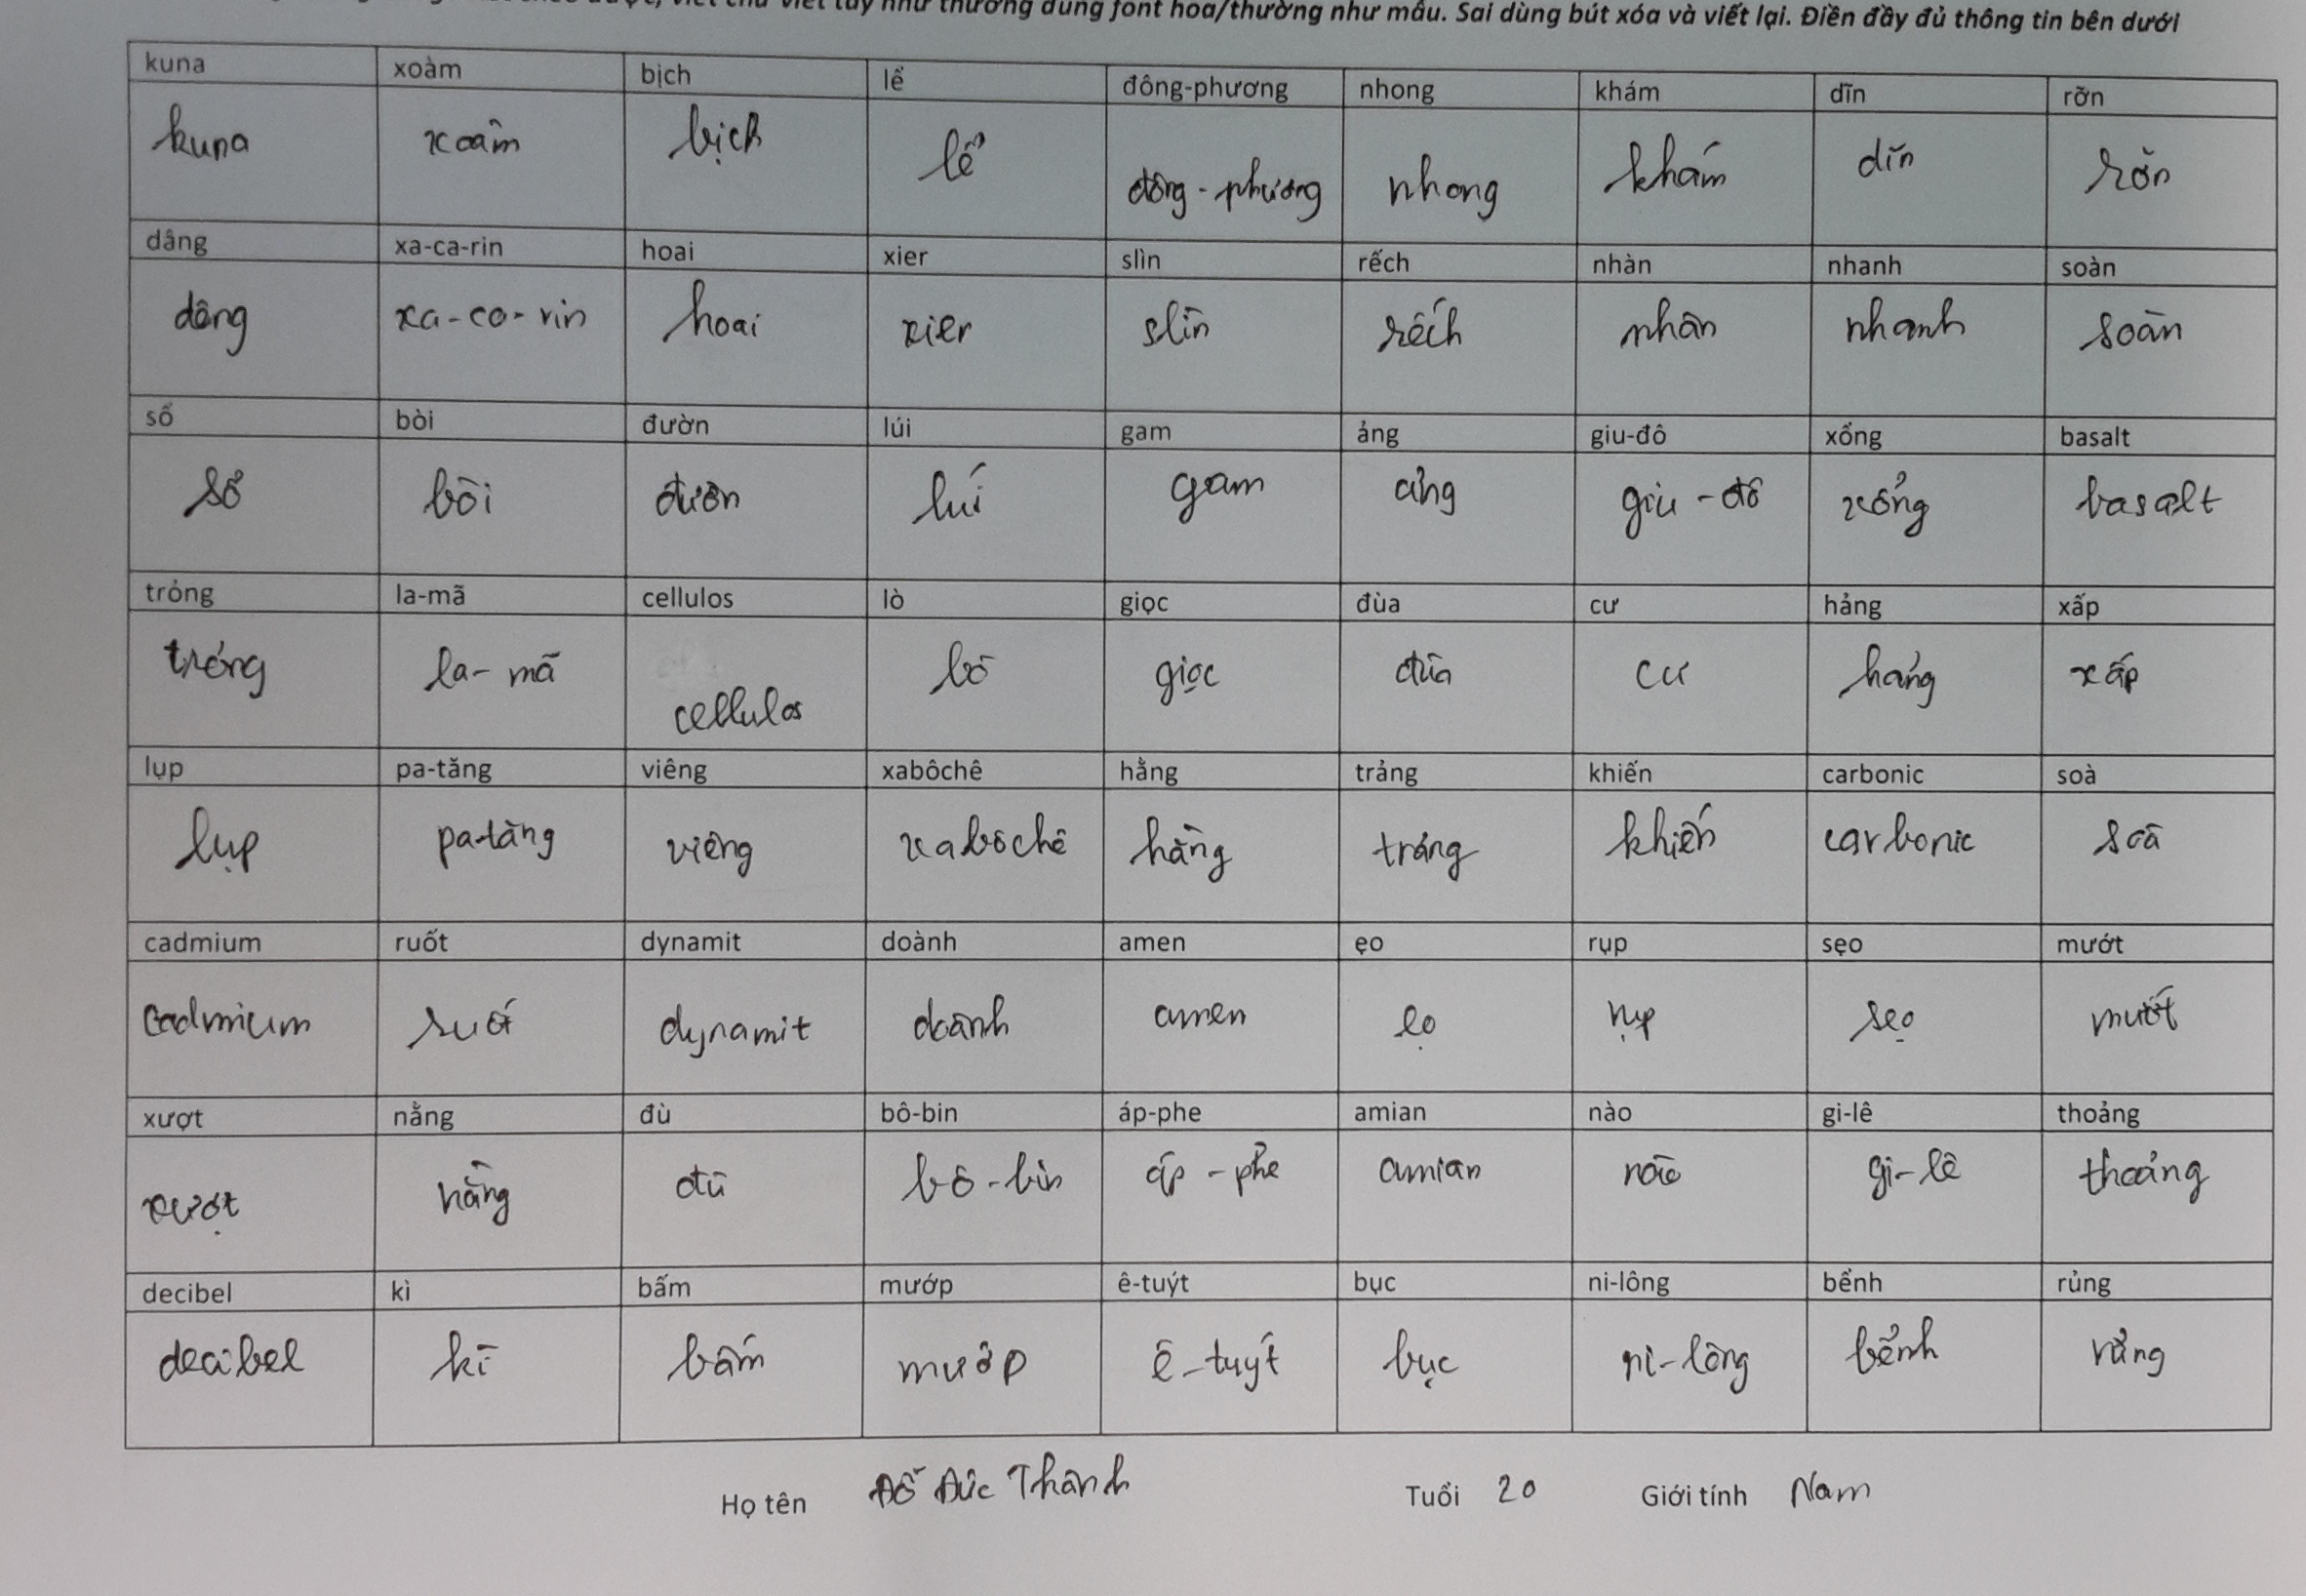 viết chữ viết tay như thường dùng font hoa/thường như mẫu. Sai dùng bút xóa và viết lại. Điền đầy đủ thông tin bên dưới
kuna xoàm bịch lể đông-phương nhong khám dĩn rỡn
kuna xoàm bịch lể đông-phương nhong khám dĩn rỡn
dâng xa-ca-rin hoai xier slìn rếch nhàn nhanh soàn
dâng xa-ca-rin hoai xier slìn rếch nhàn nhanh soàn
sổ bòi đườn lúi gam ảng giu-đô xổng basalt
sổ bòi đườn lúi gam ảng giu-đô xổng basalt
trỏng la-mã cellulos lò giọc đùa cư hảng xấp
trỏng la-mã cellulos lò giọc đùa cư hảng xấp
lụp pa-tăng viêng xabôchê hằng trảng khiến carbonic soà
lụp pa-tăng viêng xabôchê hằng trảng khiến carbonic soà
cadmium ruốt dynamit doành amen ẹo rụp sẹo mướt
cadmium ruốt dynamit doành amen ẹo rụp sẹo mướt
xượt nằng đù bô-bin áp-phe amian nào gi-lê thoảng
xượt nằng đù bô-bin áp-phe amian nào gi-lê thoảng
decibel kì bấm mướp ê-tuýt bục ni-lông bểnh rủng
decibel kì bấm mướp ê-tuýt bục ni-lông bểnh rủng
Họ tên Đỗ Đức Thành Tuổi 20 Giới tính Nam